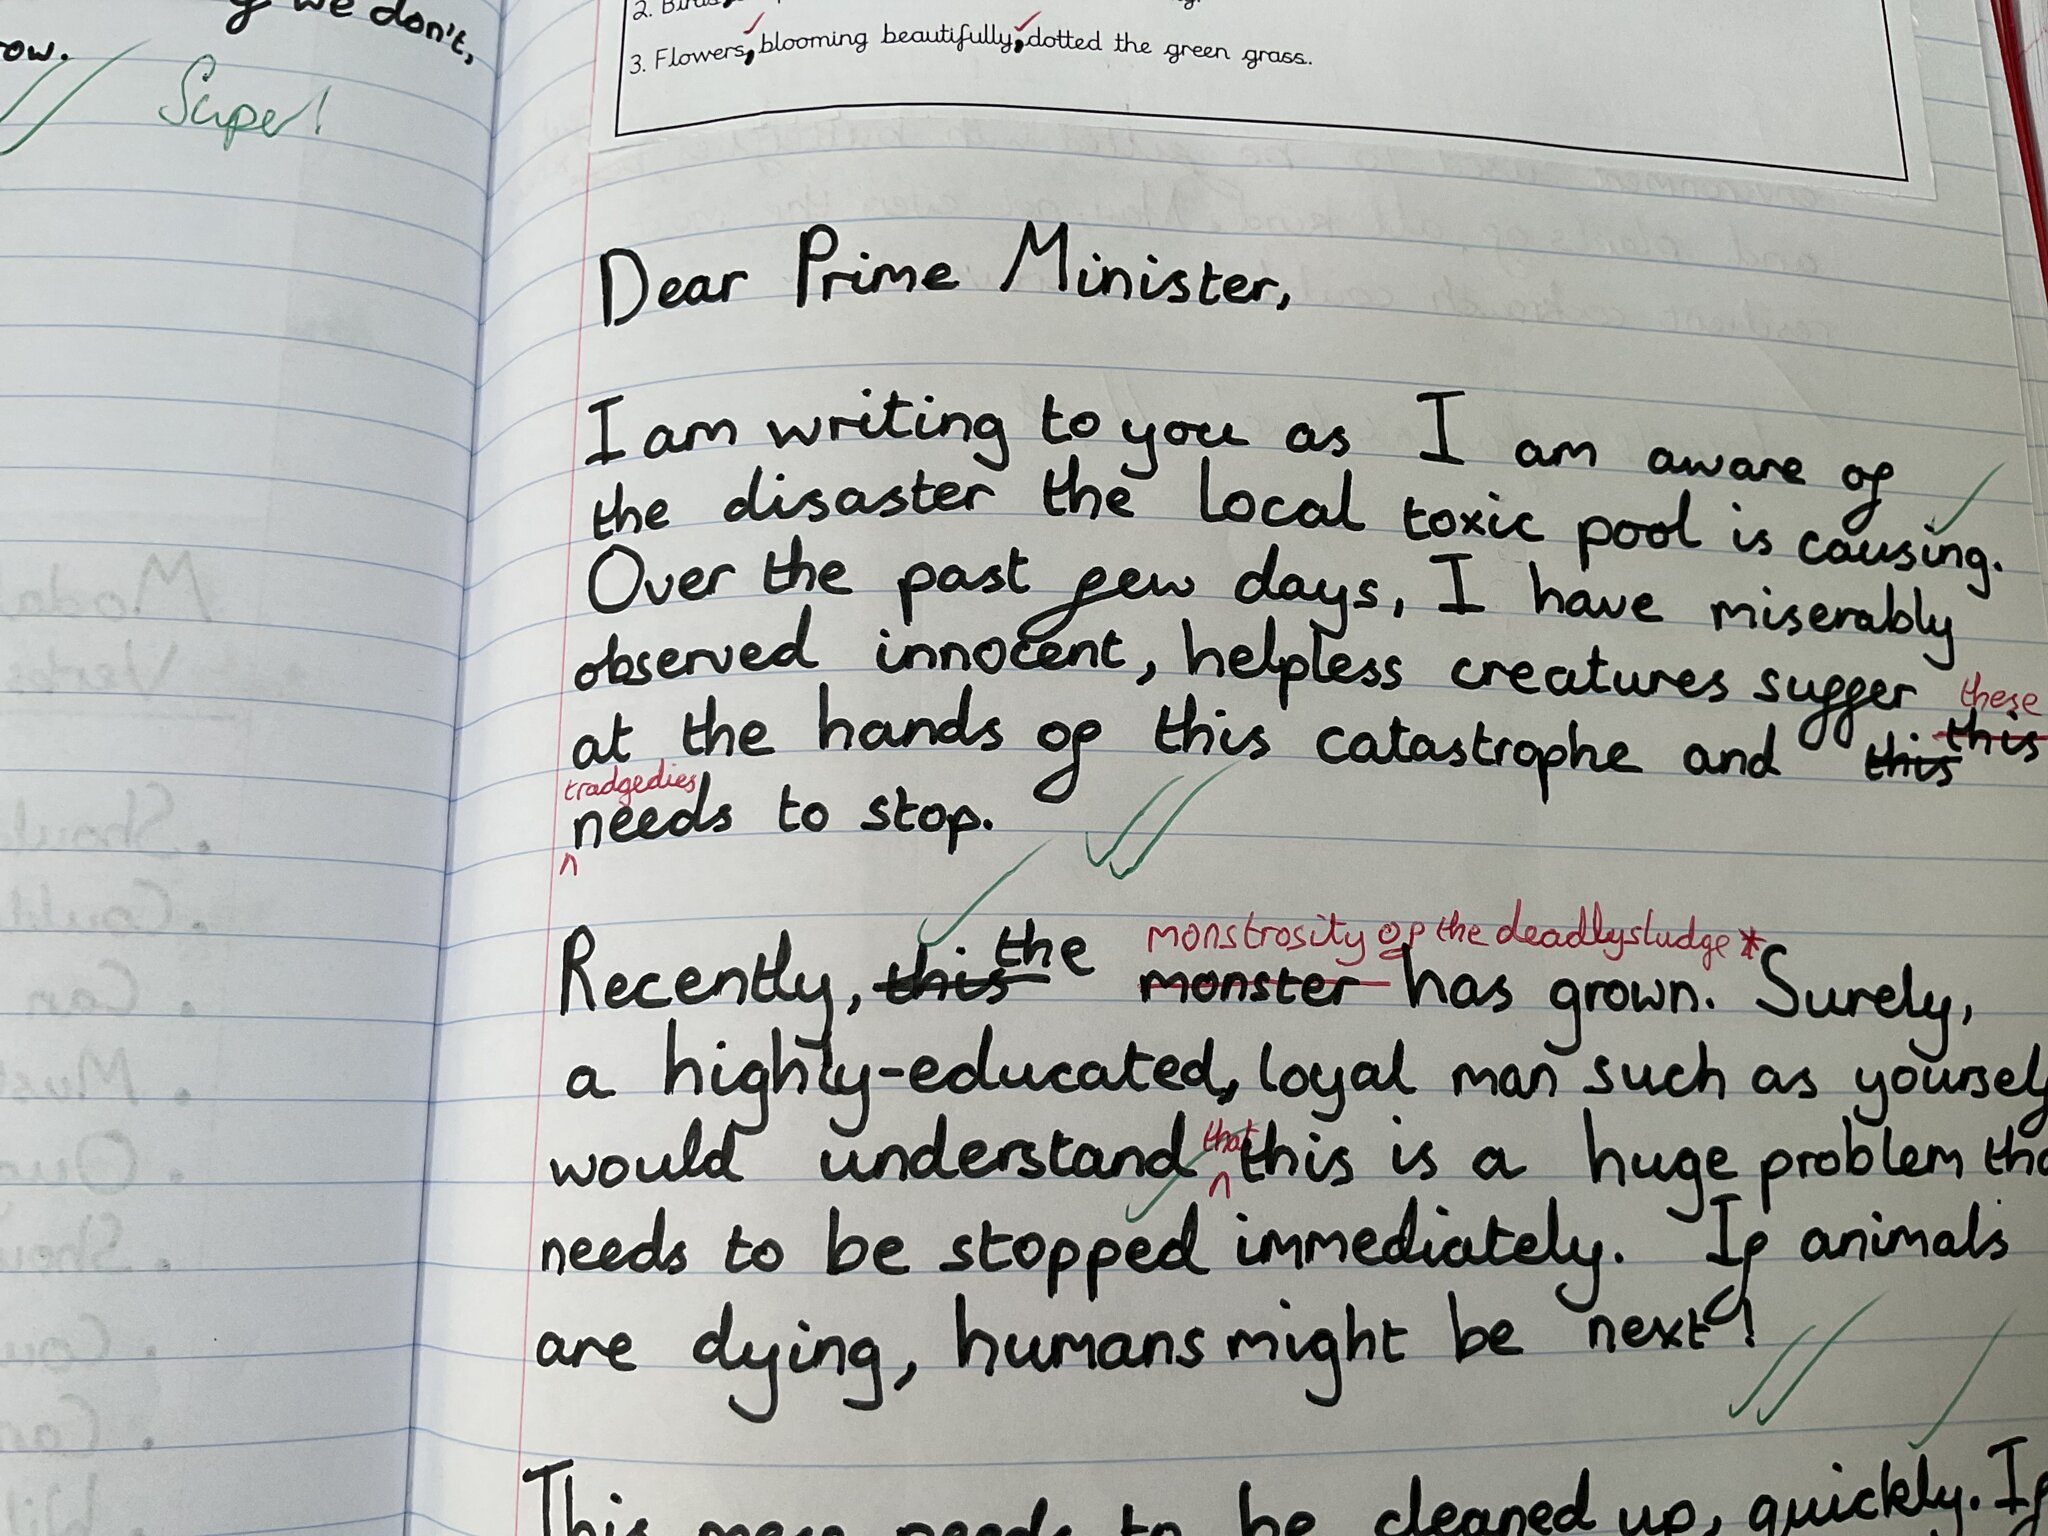 we don't,
ow.
Super!
2. Birds
3. Flowers, blooming beautifully, dotted the green grass.
Dear Prime Minister,
I am writing to you as I am aware of
the disaster the local toxic pool is causing.
Over the past few days, I have miserably
observed innocent, helpless creatures suffer
these
at the hands of this catastrophe and this this
tradgedies
^needs to stop.
monstrosity of the deadly sludge *
Recently, this the monster has grown. Surely,
a highly-educated, loyal man such as yourself
would understand ^that this is a huge problem tha
needs to be stopped immediately. If animals
are dying, humans might be next!
This mess needs to be cleaned up, quickly. If
Modal
Verbs
• Should
• Could
• Can
• Must